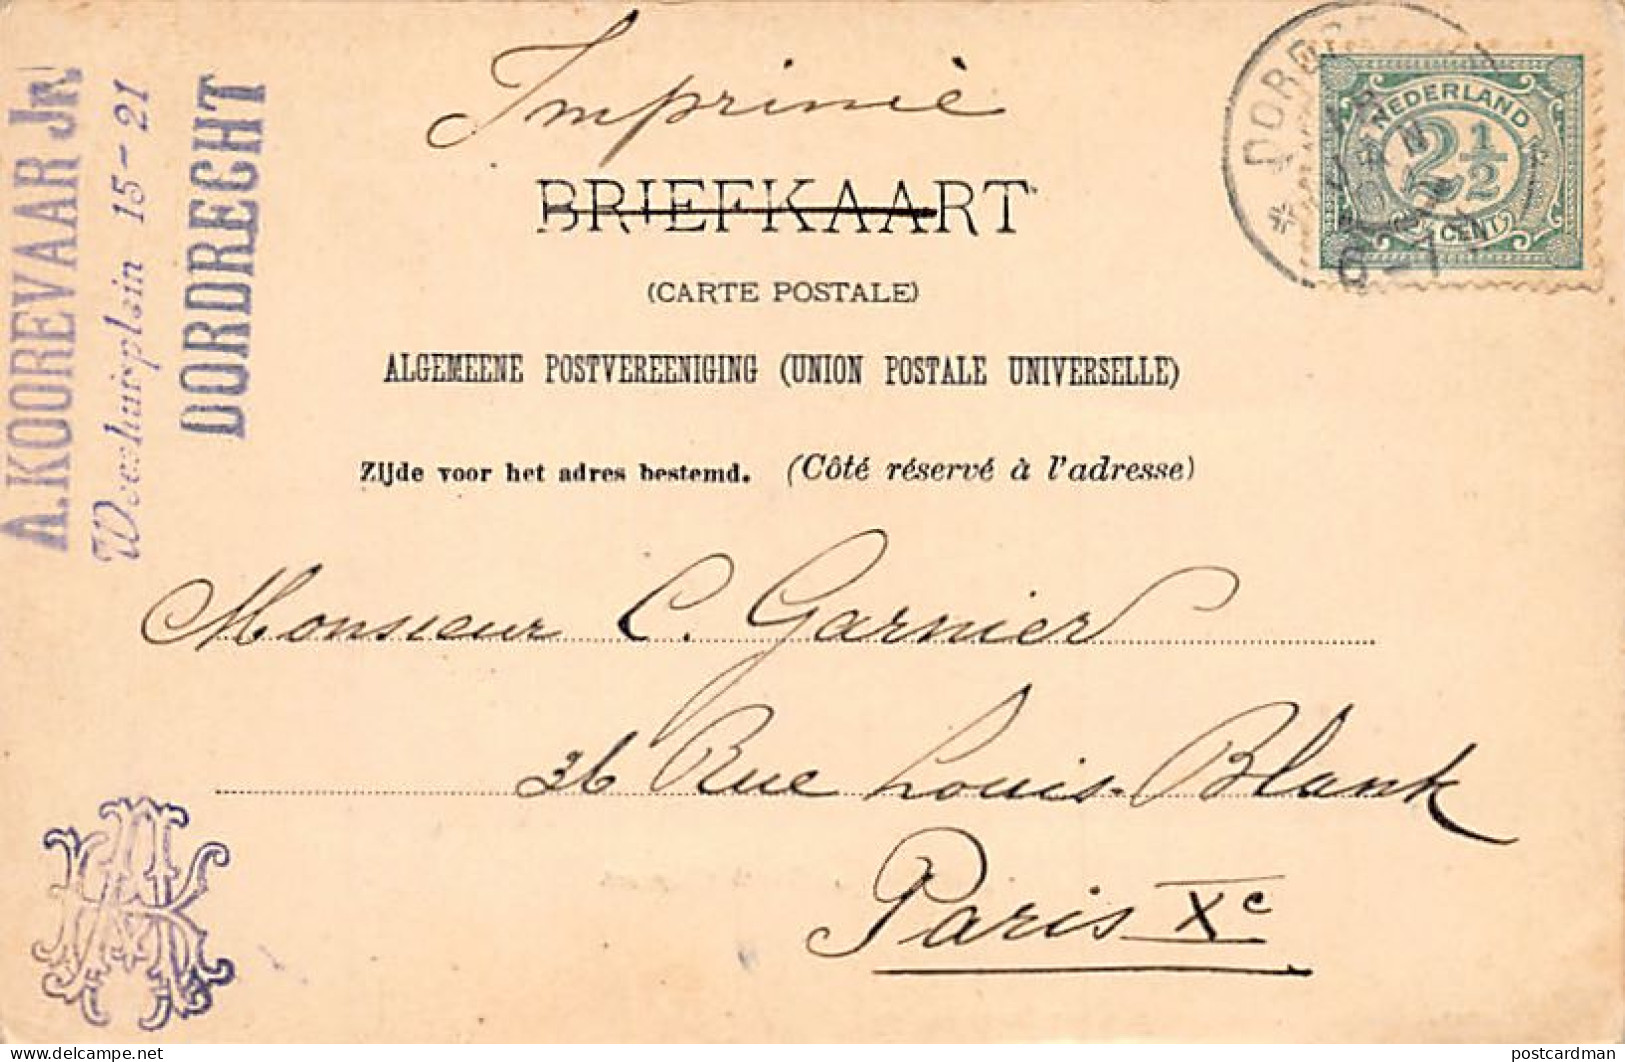 Imprimè
BRIEFKAART
(CARTE POSTALE)
ALGEMEENE POSTVEREENIGING (UNION POSTALE UNIVERSELLE)
Zijde voor het adres bestemd. (Côté réservé à l'adresse)
A. KOOREVAAR Jr.
Weeshuisplein 15-21
DORDRECHT
NEDERLAND
2½
CENT
Monsieur C. Garnier
36 Rue Louis-Blank
Paris Xe
postcardman